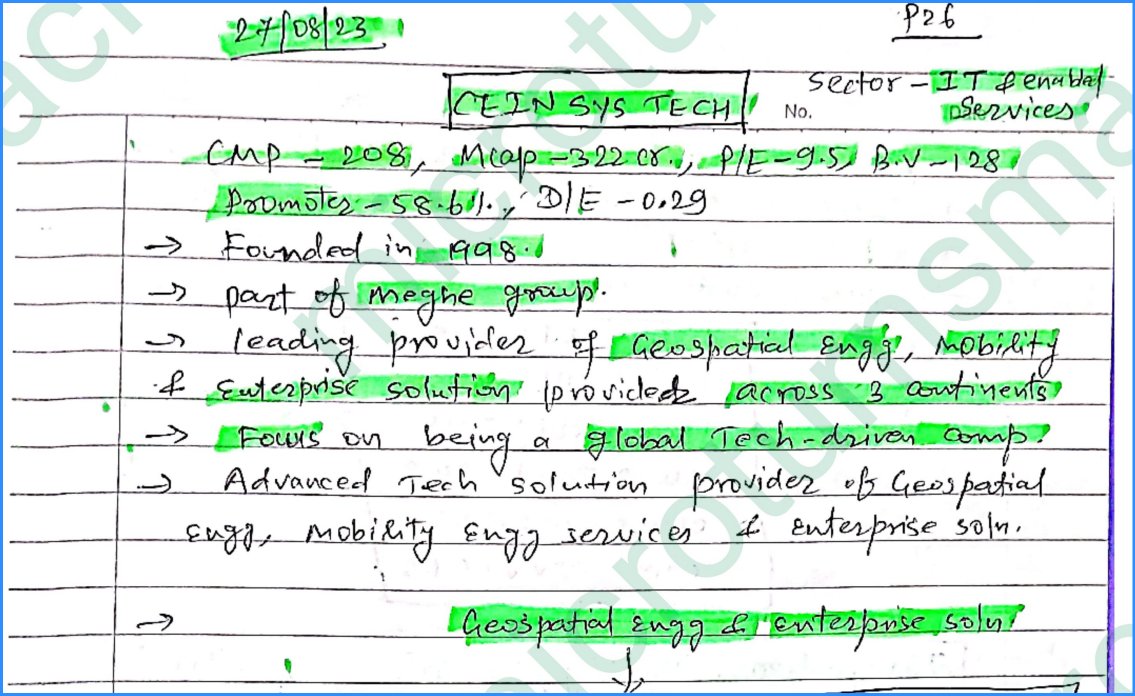 27/08/23
P26
Sector - IT & enabled
CEINSYS TECH
No.
Services
CMP - 208, Mcap - 322 cr., P/E - 9.5, B.V - 128
Promoter - 58.6%., D/E - 0.29
→ Founded in 1998.
→ part of Meghe group.
→ leading provider of Geospatial Engg, Mobility
& Enterprise solution provided across 3 continents
→ Focus on being a global Tech-driven comp.
→ Advanced Tech solution provider of Geospatial
Engg, Mobility Engg services & Enterprise soln.
→ Geospatial Engg & Enterprise soln.